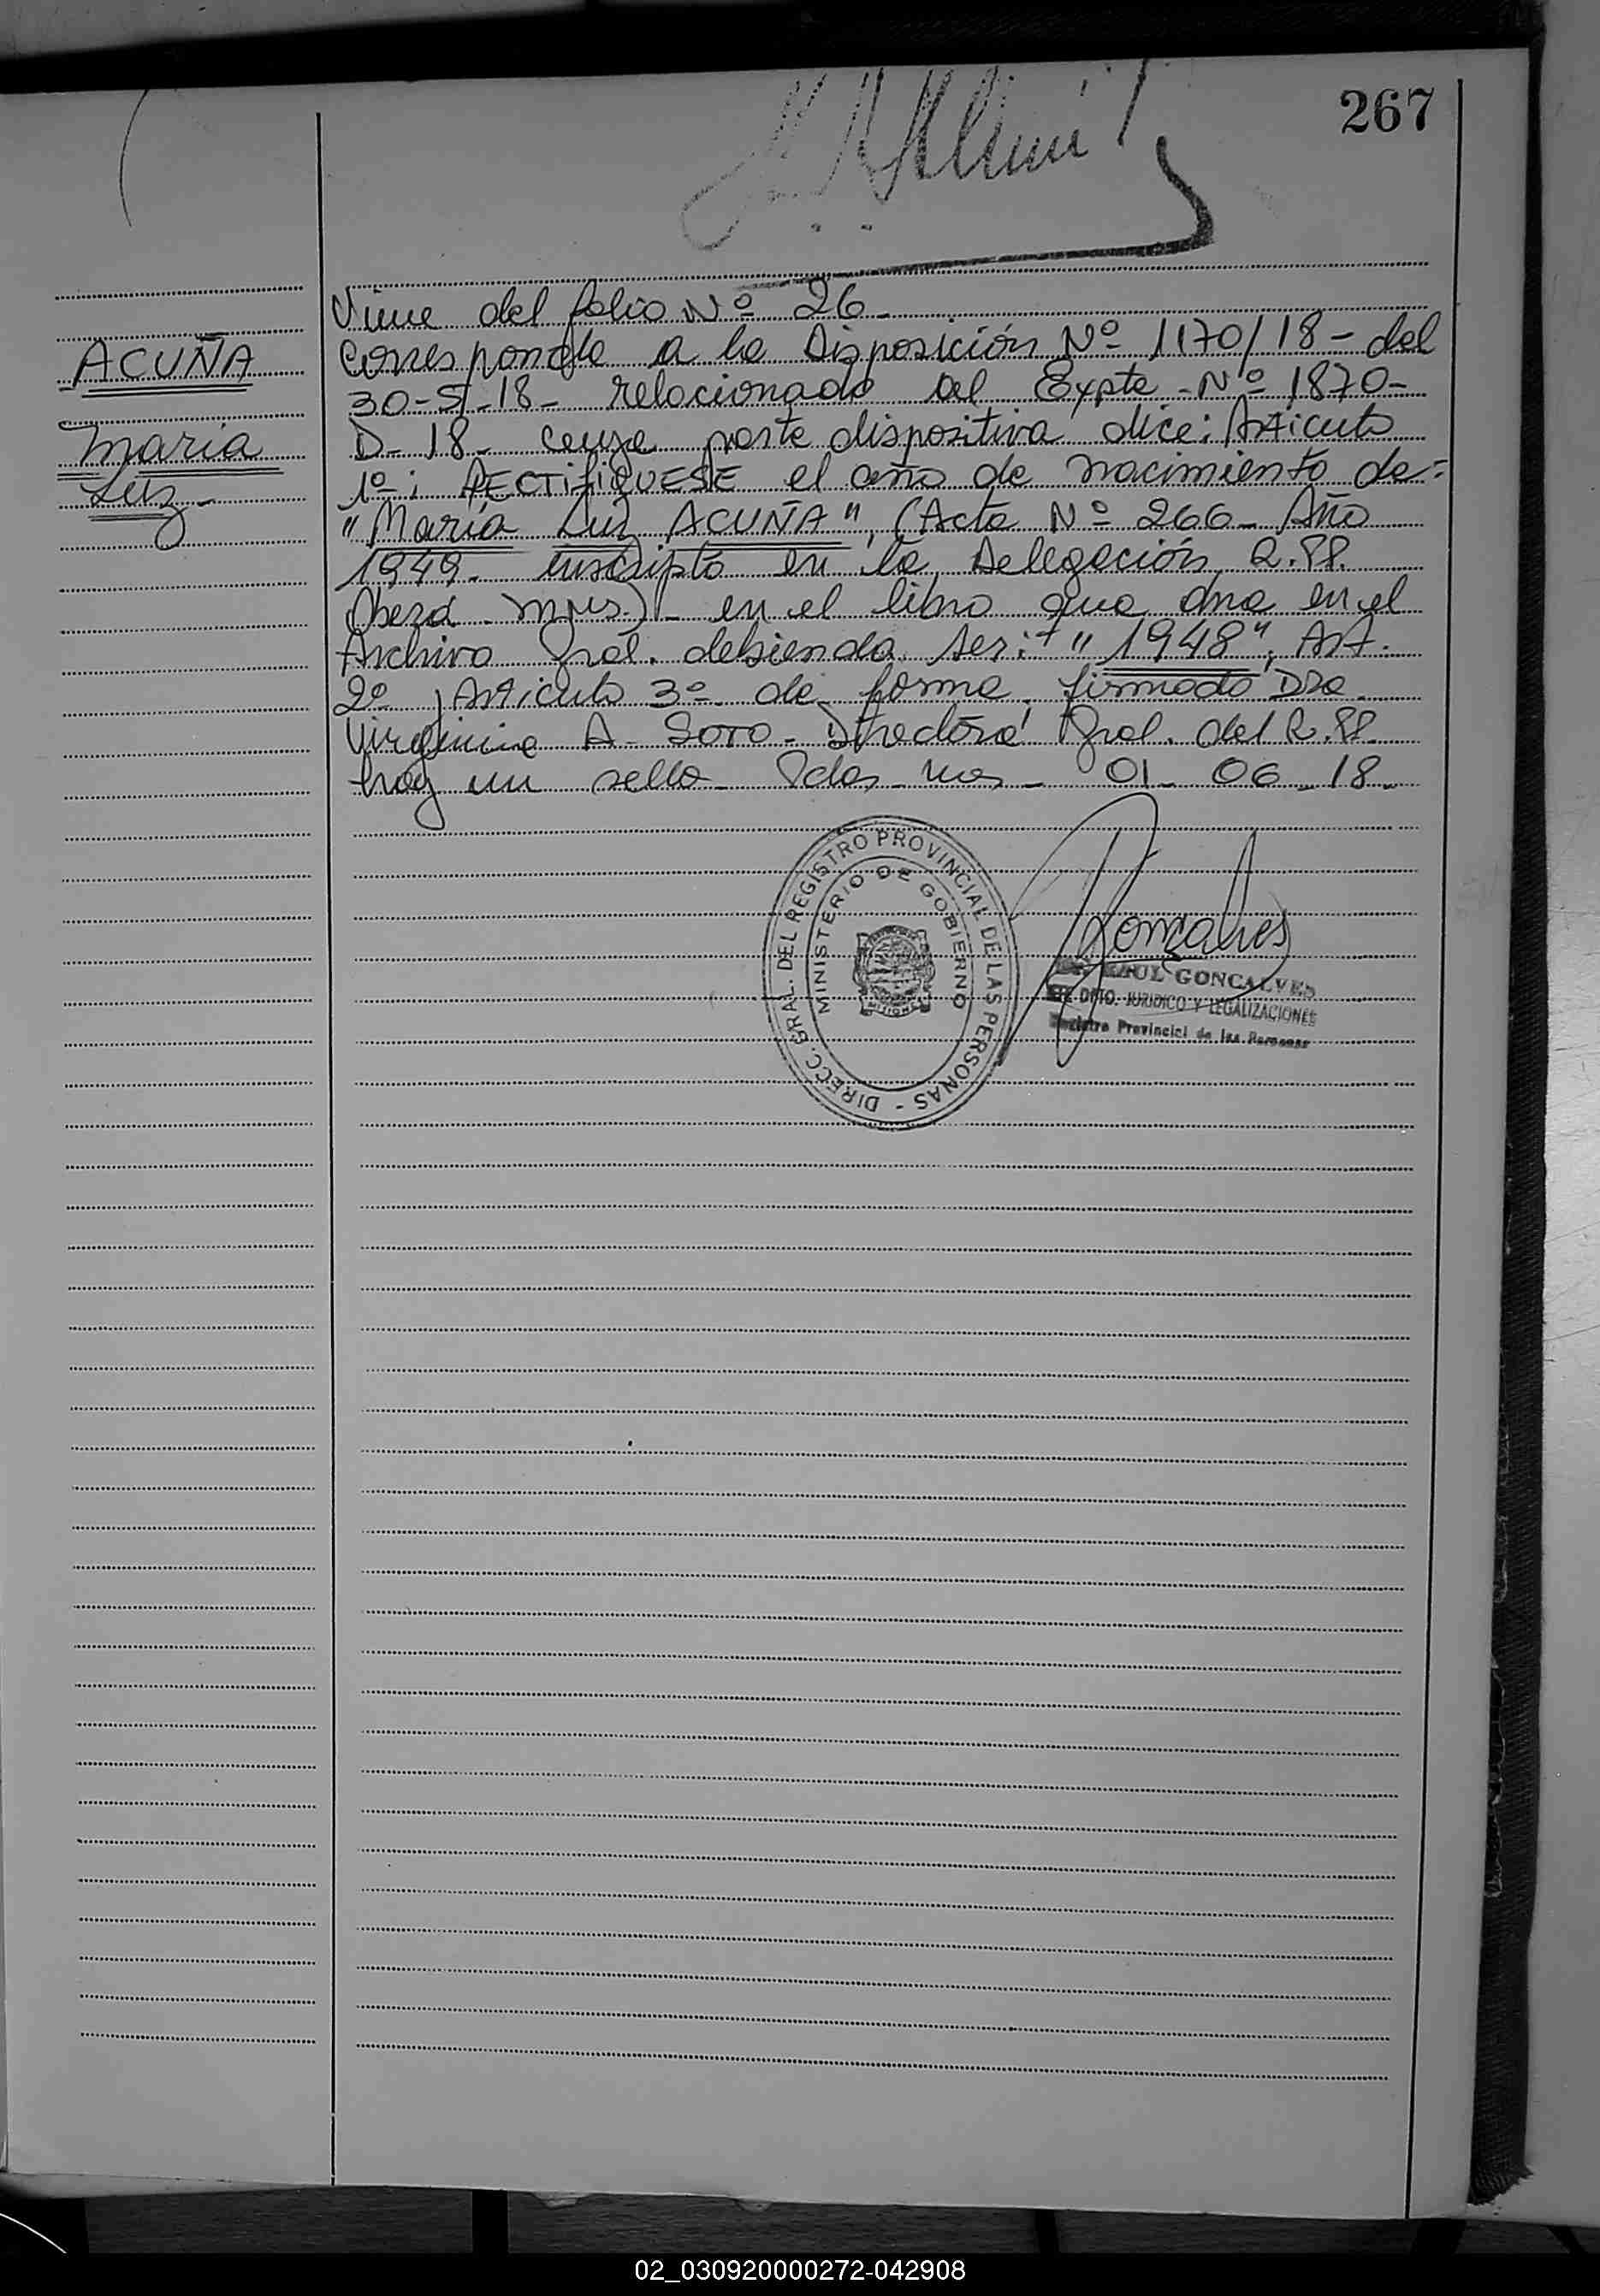 267
Viene del folio Nº 26-
ACUÑA
María
Luz-
Corresponde a la Disposición Nº 1170/18- del
30-5-18- relacionado al Expte-Nº 1870-
D-18- cuya parte dispositiva dice: Artículo
1º: RECTIFIQUESE el año de nacimiento de:
"María Luz ACUÑA", (Acta Nº 266- Año
1949- inscripta en la Delegación R.PP.
Oberá - Mnes.)- en el libro que obra en el
Archivo Gral. debiendo ser: "1948", Art.
2º, Artículo 3º de forma, firmado Dra
Virginia A- SOTO- Directora Gral. del R.PP.
hay un sello- Pdas- Mnes- 01-06-18-
DIRECC. GRAL. DEL REGISTRO PROVINCIAL DE LAS PERSONAS -
MINISTERIO DE GOBIERNO
MISIONES
Gonçalves
RAUL GONCALVES
DPTO. JURIDICO Y LEGALIZACIONES
Registro Provincial de las Personas
02_030920000272-042908